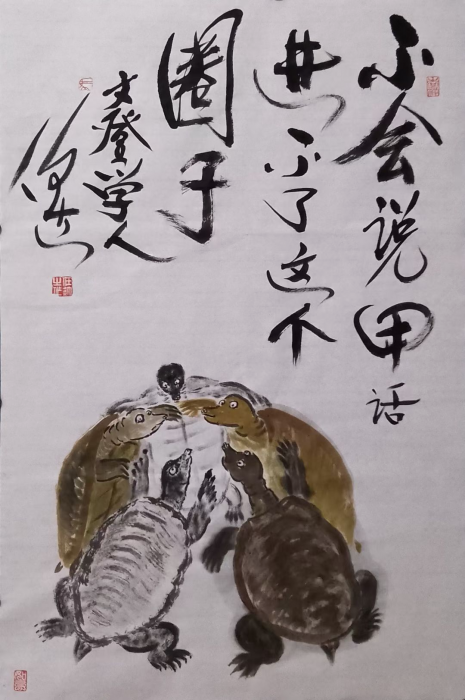 不会说甲话
进不了这个
圈子
文登学人